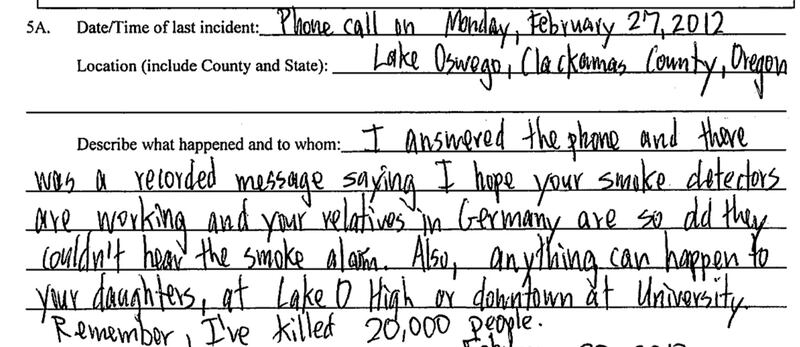 5A. Date/Time of last incident: Phone call on Monday, February 27, 2012
Location (include County and State): Lake Oswego, Clackamas County, Oregon
Describe what happened and to whom: I answered the phone and there
was a recorded message saying I hope your smoke detectors
are working and your relatives in Germany are so old they
couldn't hear the smoke alarm. Also, anything can happen to
your daughters, at Lake O High or downtown at University.
Remember, I've killed 20,000 people.